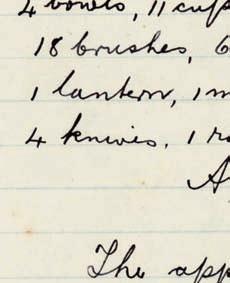 4 bowls, 11 cups
18 brushes, 6
1 lantern, 1
4 knives, 1
The